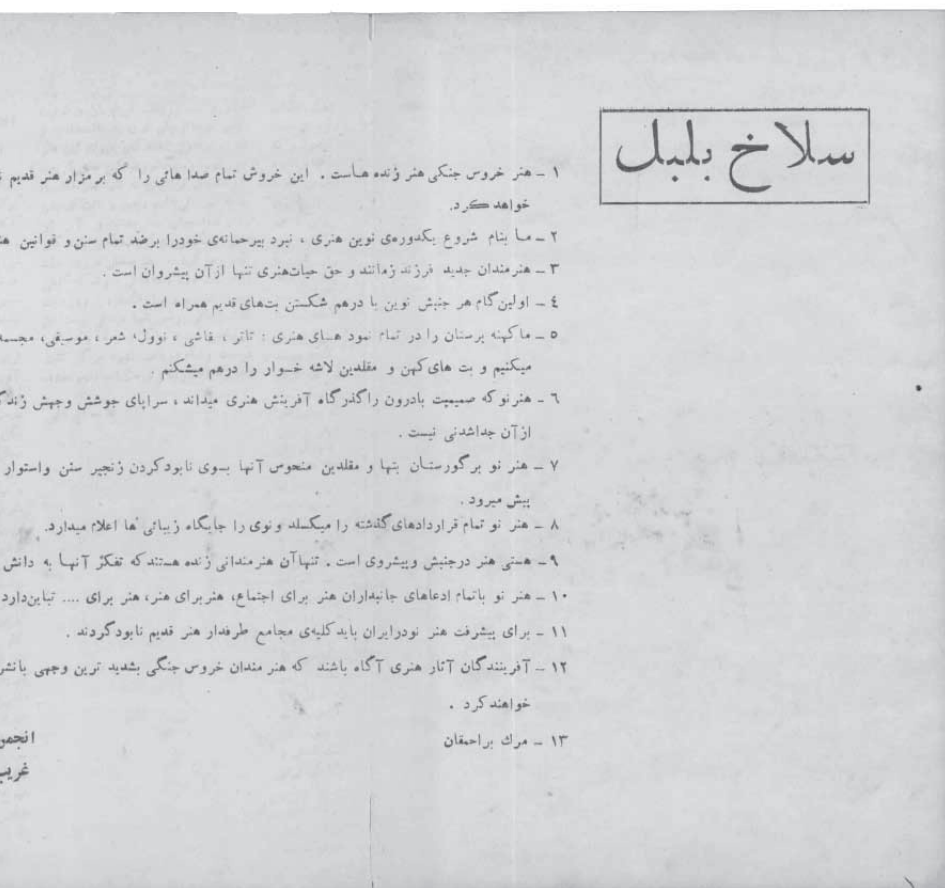 سلاخ بلبل
۱ – هنر خروس جنگی هنر زنده هاست . این خروش تمام صدا هائی را که بر مزار هنر قدیم
خواهد کرد.
۲ – ما بنام شروع یکدوره‌ی نوین هنری ، نبرد بیرحمانه‌ی خودرا برضد تمام سنن و قوانین
۳ – هنرمندان جدید فرزند زمانند و حق حیات هنری تنها از آن پیشروان است .
٤ – اولین گام هر جنبش نوین با درهم شکستن بت‌های قدیم همراه است .
٥ – ما کهنه پرستان را در تمام نمود هــای هنری : تاتر ، نقاشی ، نوول، شعر ، موسیقی،
میکنیم و بت های کهن و مقلدین لاشه خــوار را درهم میشکنم .
٦ – هنر نو که صمیمیت بادرون را گذرگاه آفرینش هنری میداند ، سراپای جوشش وجهش
از آن جداشدنی نیست .
۷ – هنر نو بر گورستان بتها و مقلدین منحوس آنها بسوی نابود کردن زنجیر سنن واستوار
پیش میرود .
۸ – هنر نو تمام قراردادهای گذشته را میکسلد و نوی را جایگاه زیبائی ها اعلام میدارد.
۹ – هستی هنر درجنبش وپیشروی است . تنها آن هنرمندانی زنده هستند که تفکر آنها به دانش
۱۰ – هنر نو باتمام ادعاهای جانبداران هنر برای اجتماع، هنر برای هنر، هنر برای .... تباین دارد
۱۱ – برای پیشرفت هنر نودرایران باید کلیه‌ی مجامع طرفدار هنر قدیم نابود گردند .
۱۲ – آفرینندگان آثار هنری آگاه باشند که هنر مندان خروس جنگی بشدید ترین وجهی
خواهند کرد .
۱۳ – مرك بر احمقان